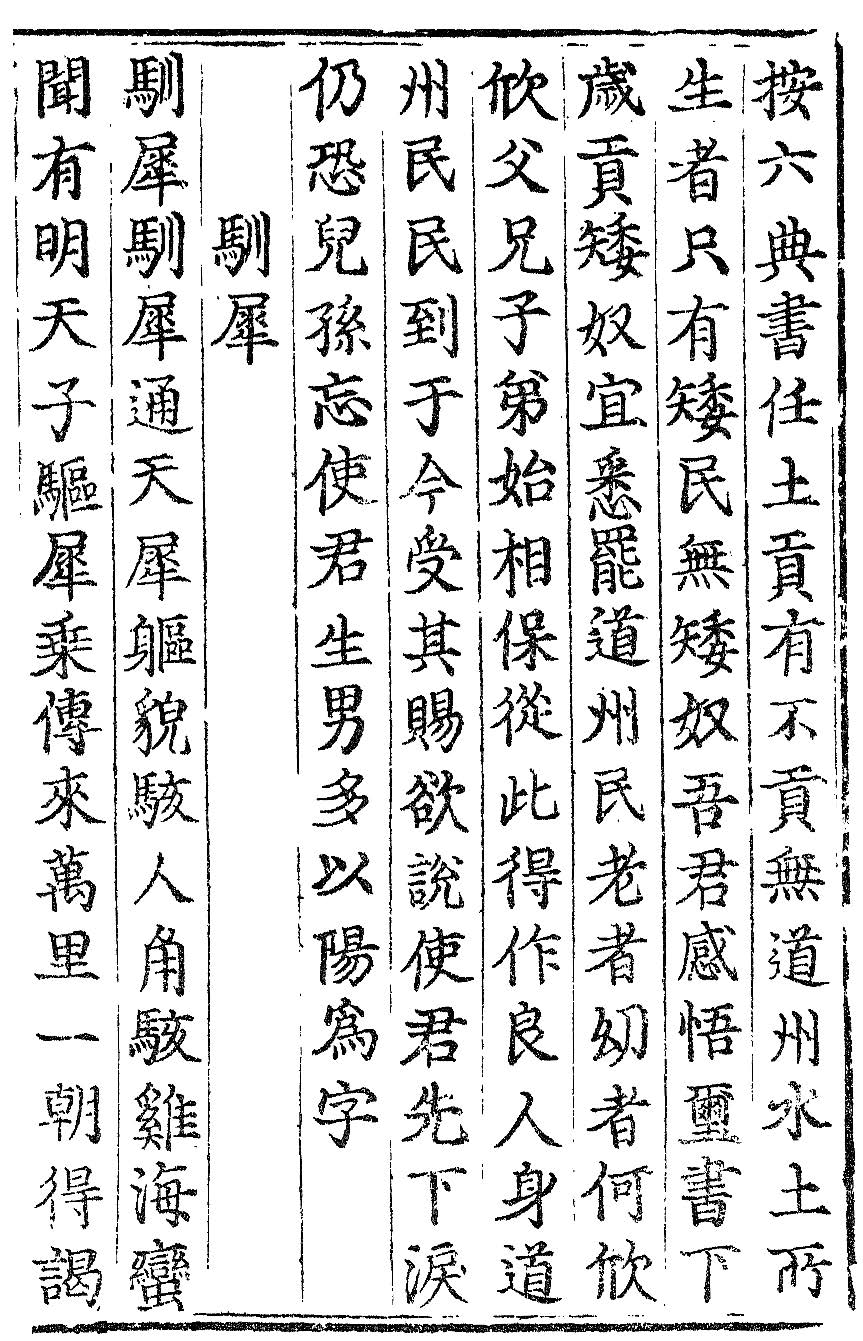 按六典書任土貢有不貢無道州水土所
生者只有矮民無矮奴吾君感悟璽書下
歲貢矮奴宜悉罷道州民老者幼者何欣
欣父兄子弟始相保從此得作良人身道
州民民到于今受其賜欲說使君先下淚
仍恐兒孫忘使君生男多以陽爲字
馴犀
馴犀馴犀通天犀軀貌駭人角駭雞海蠻
聞有明天子驅犀乗傳來萬里一朝得謁